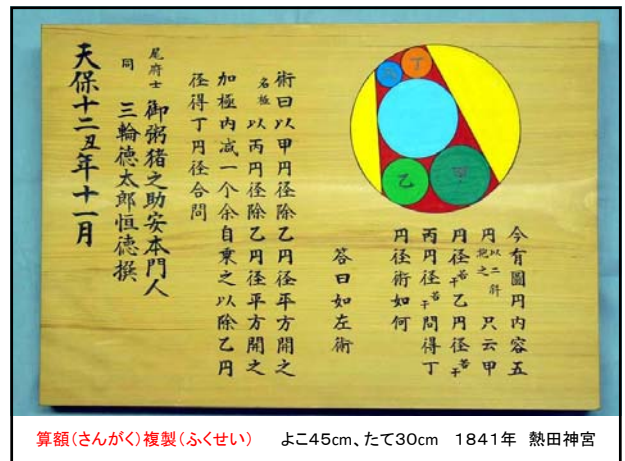 丙
丁
乙
甲
今有圖円内容五
円以二斜抱之只云甲
円径若干乙円径若干
丙円径若干問得丁
円径術如何
答曰如左術
術曰以甲円径除乙円径平方開之
名極以丙円径除乙円径平方開之
加極内減一个余自乗之以除乙円
径得丁円径合問
尾府士 御粥猪之助安本門人
同 三輪徳太郎恒徳撰
天保十二丑年十一月
算額(さんがく)複製(ふくせい) よこ45cm、たて30cm 1841年 熱田神宮